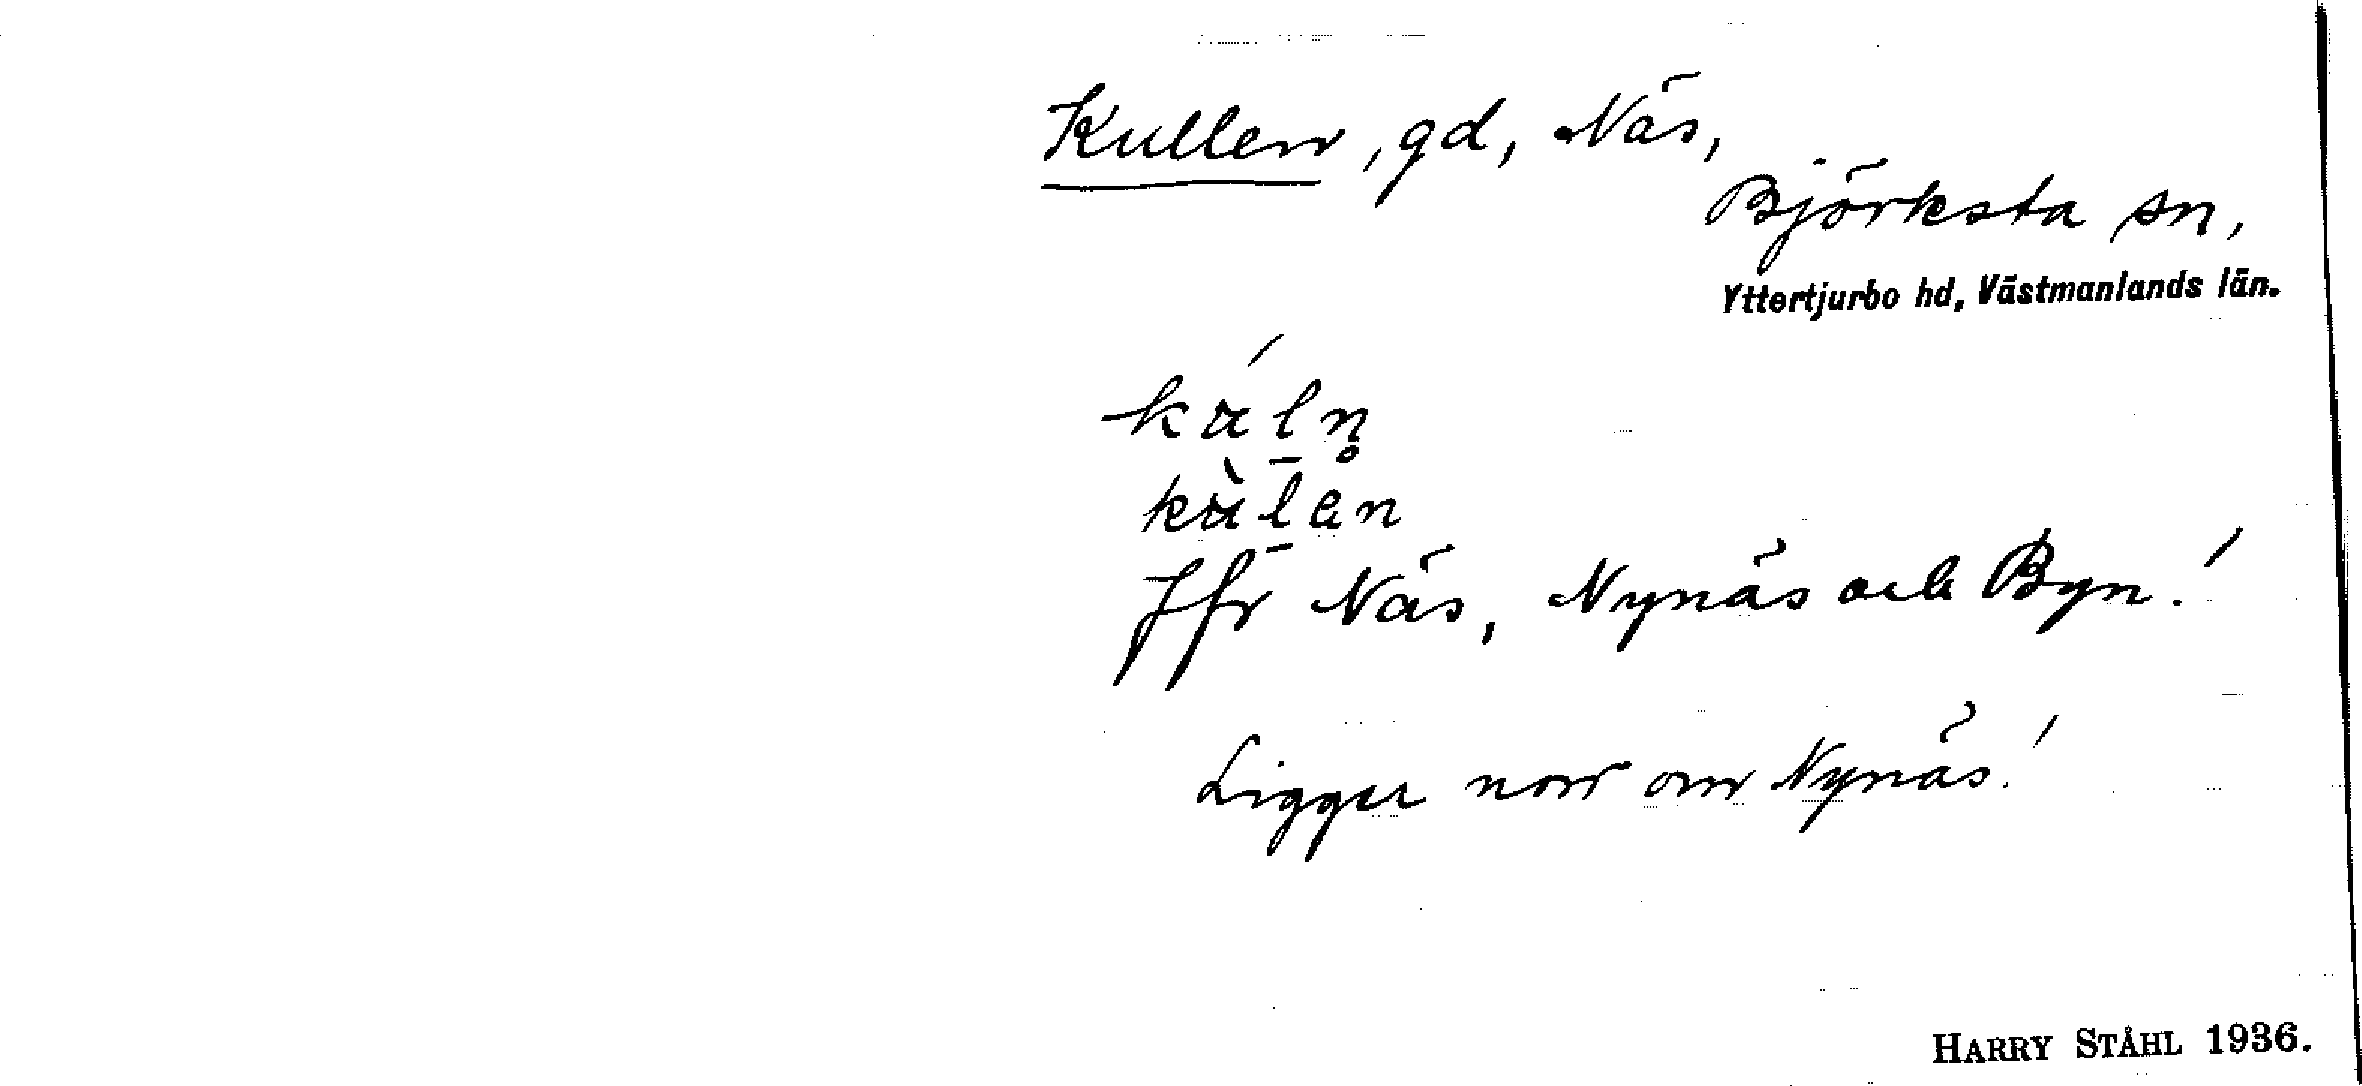 Kullen, gd, Näs,
Björksta sn,
Yttertjurbo hd, Västmanlands län.
Jfr Näs, Nynäs och Byn!
Ligger norr om Nynäs!
HARRY STÅHL 1936.